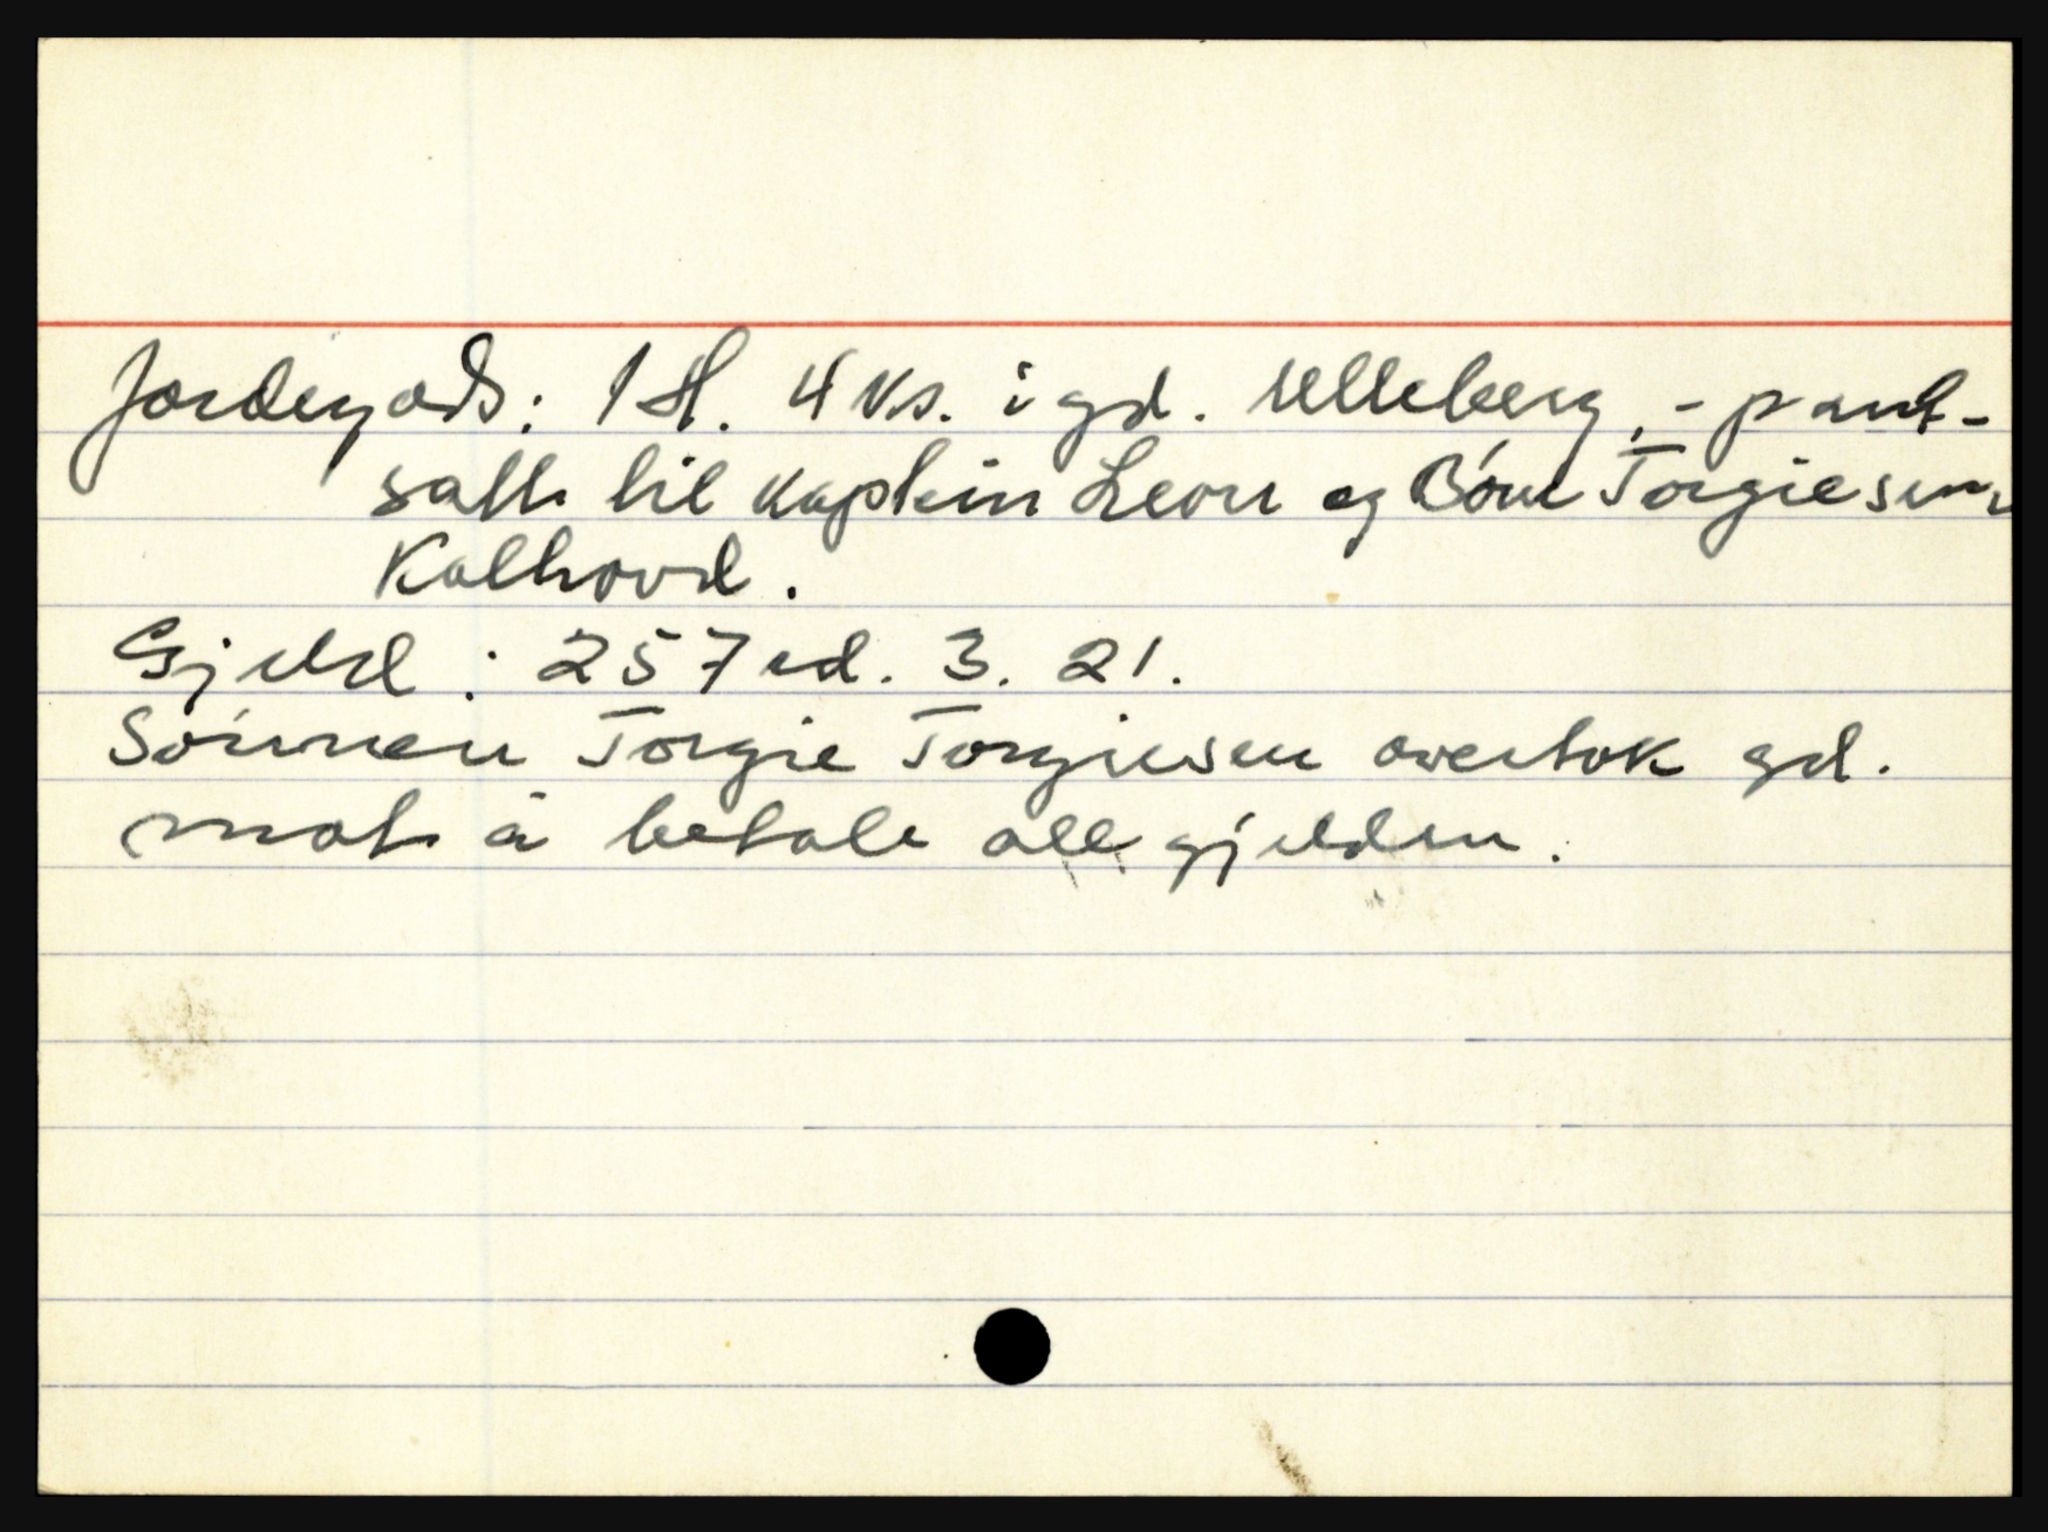 Jordegods: 1 H. 4 ks. i gd. Ulleberg, - pant-
satt til kaptein Leon og Torgiesen
Kalhovd.
Gjeld: 257 rd. 3. 21.
Sönnen Torgie Torgiesen overtok gd.
mot å betale all gjelden.